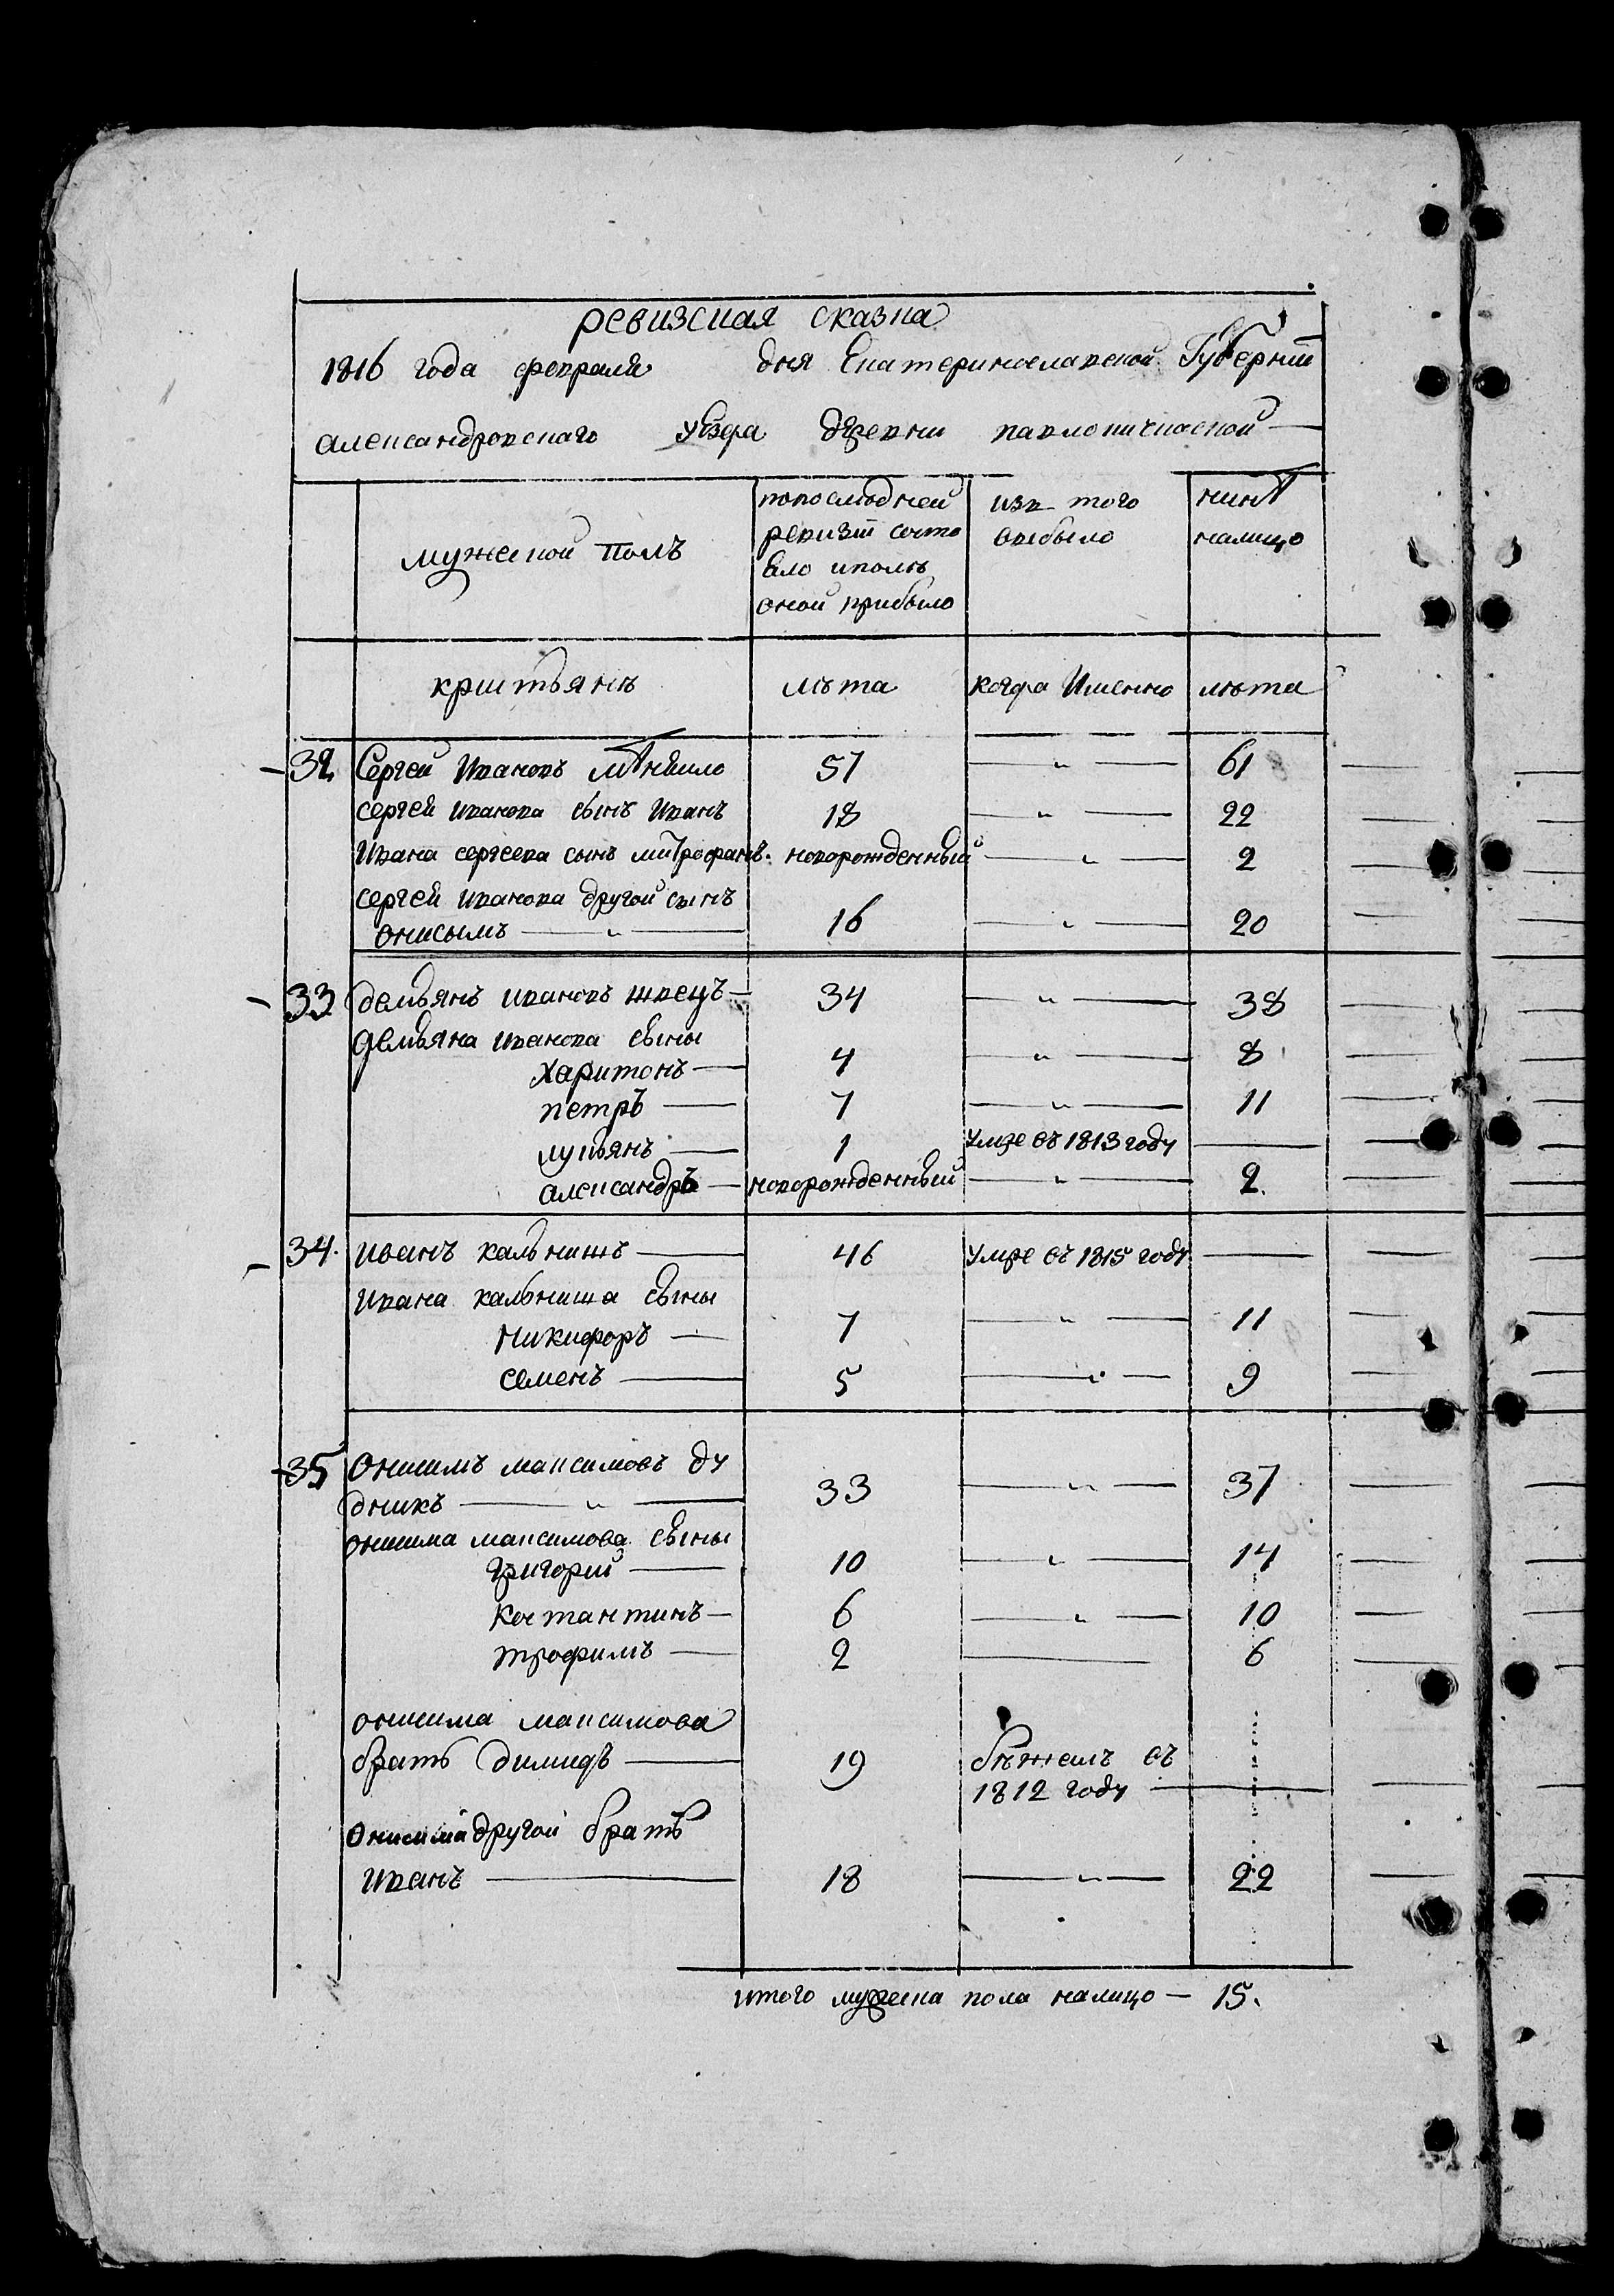 ревизская сказка
1816 года февраля дня Екатеринославской Губернiи
александровскаго уезда деревни павлокичкаской
мужеской полъ
попоследней ревизiи состо яло ипосле оной прибыло
изъ того выбыло
ныне налицо
кристьянъ
лѣта
когда Именно
лѣта
32 Сергей Ивановъ 57 61
сергей иванова сынъ Иванъ 18 22
Ивана сергеева сынъ митрофанъ новорожденный 2
сергей иванова другой сынъ
онисымъ 16 20
33 демьянъ ивановъ швецъ 34 38
Демьяна иванова сыны
харитонъ 4 8
петръ 7 11
лукьянъ 1 умре въ 1813 году
александръ новорожденный 2
34. иванъ кальнишъ 46 умре въ 1815 году
ивана кальниша сыны
никифоръ 7 11
семенъ 5 9
35 Онисимъ максимовъ ду
дникъ 33 37
онисима максимова сыны
григорий 10 14
костантинъ 6 10
трофимъ 2 6
онисима максимова
братъ димидъ 19 бежалъ въ
1812 году
Онисима другой братъ
иванъ 18 22
итого мужеска пола налицо — 15.